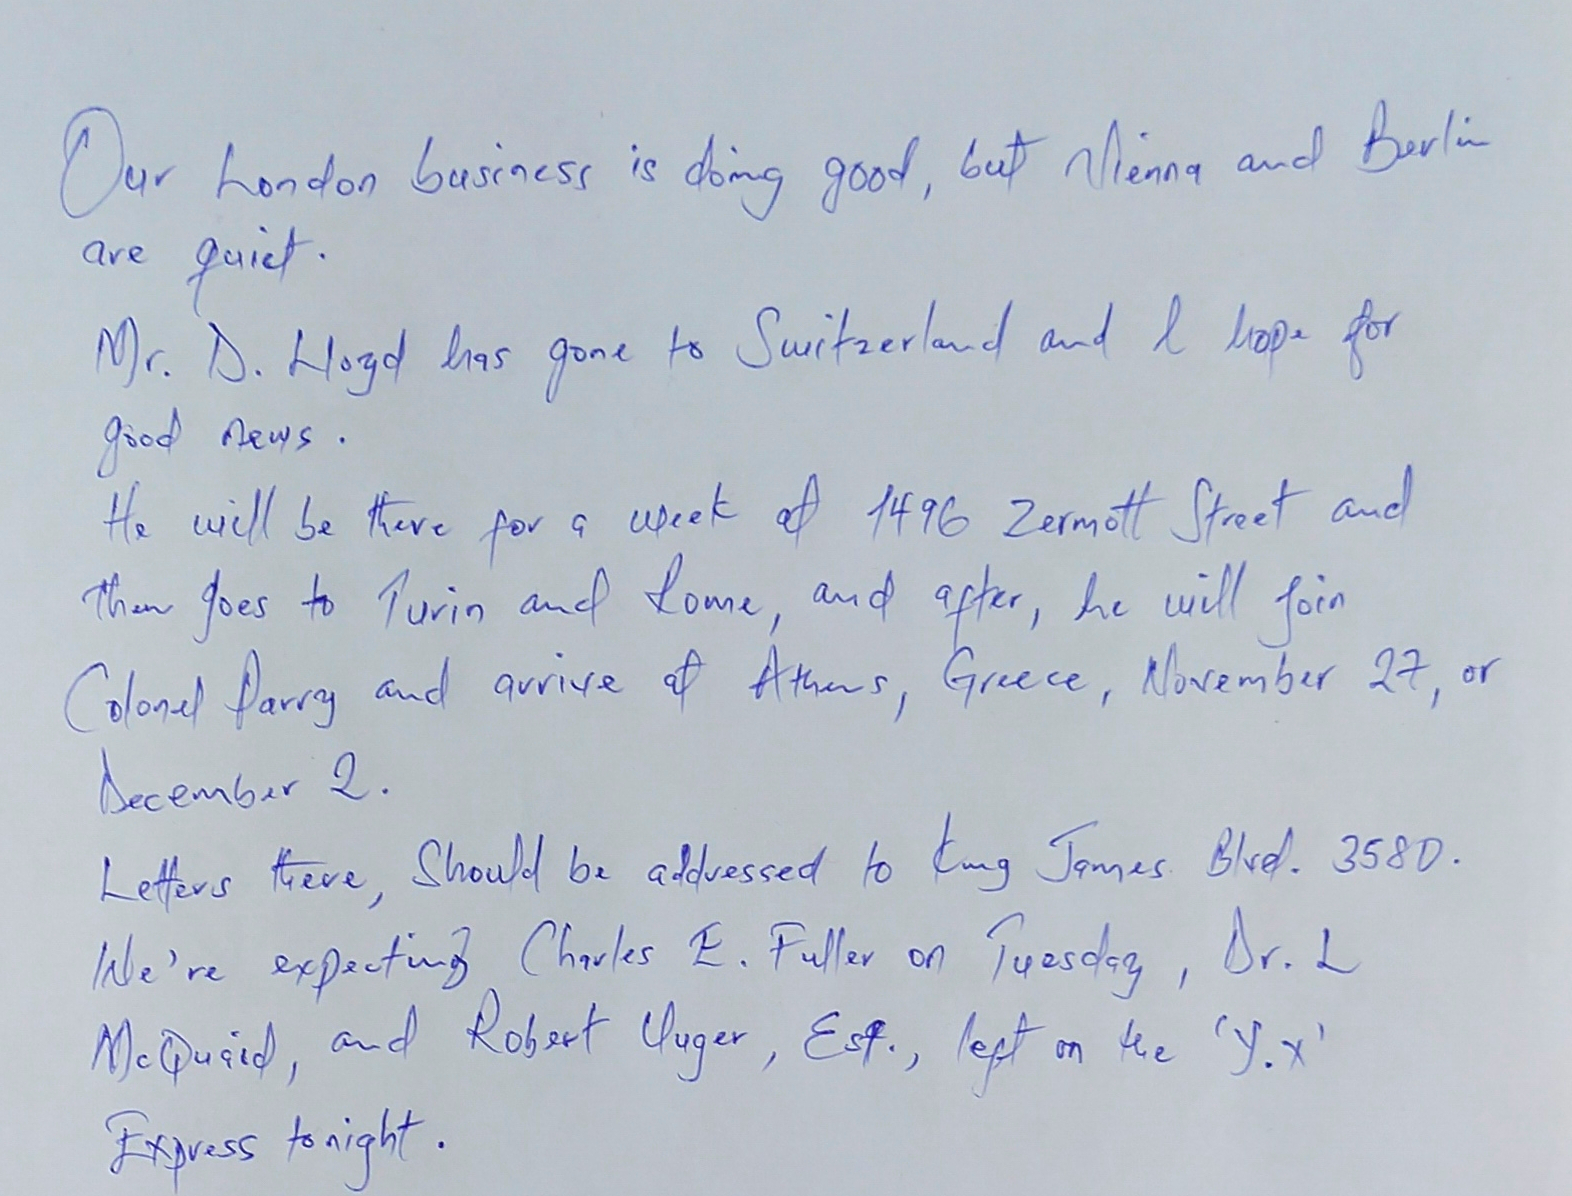 Our London business is doing good, but Vienna and Berlin
are quiet.
Mr. D. Lloyd has gone to Switzerland and I hope for
good news.
He will be there for a week at 1496 Zermott Street and
then goes to Turin and Rome, and after, he will join
Colonel Parry and arrive at Athens, Greece, November 27, or
December 2.
Letters there, Should be addressed to King James Blvd. 3580.
We're expecting Charles E. Fuller on Tuesday, Dr. L
McQuaid, and Robert Unger, Esq., left on the 'Y.X'
Express tonight.